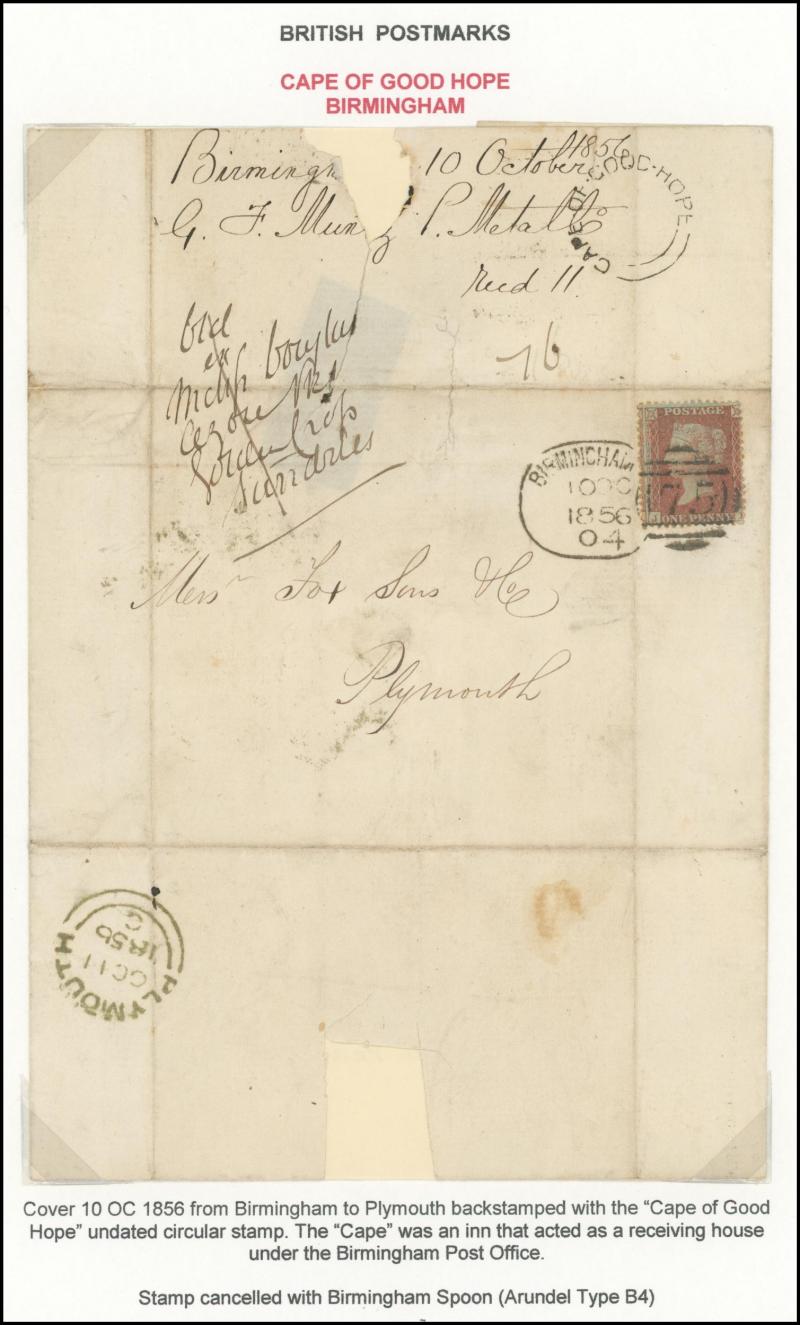 BRITISH POSTMARKS
CAPE OF GOOD HOPE
BIRMINGHAM
Birmingh 10 October 1856
G. F. Mun P. Metal Co
CAPE OF GOOD-HOPE
Recd 11
Sundries
POSTAGE
ONE PENNY
75
BIRMINGHAM
10 OC
1856
04
Messrs Fox Sons & Co
Plymouth
PLYMOUTH
OC 11
1856
Cover 10 OC 1856 from Birmingham to Plymouth backstamped with the “Cape of Good
Hope” undated circular stamp. The “Cape” was an inn that acted as a receiving house
under the Birmingham Post Office.
Stamp cancelled with Birmingham Spoon (Arundel Type B4)